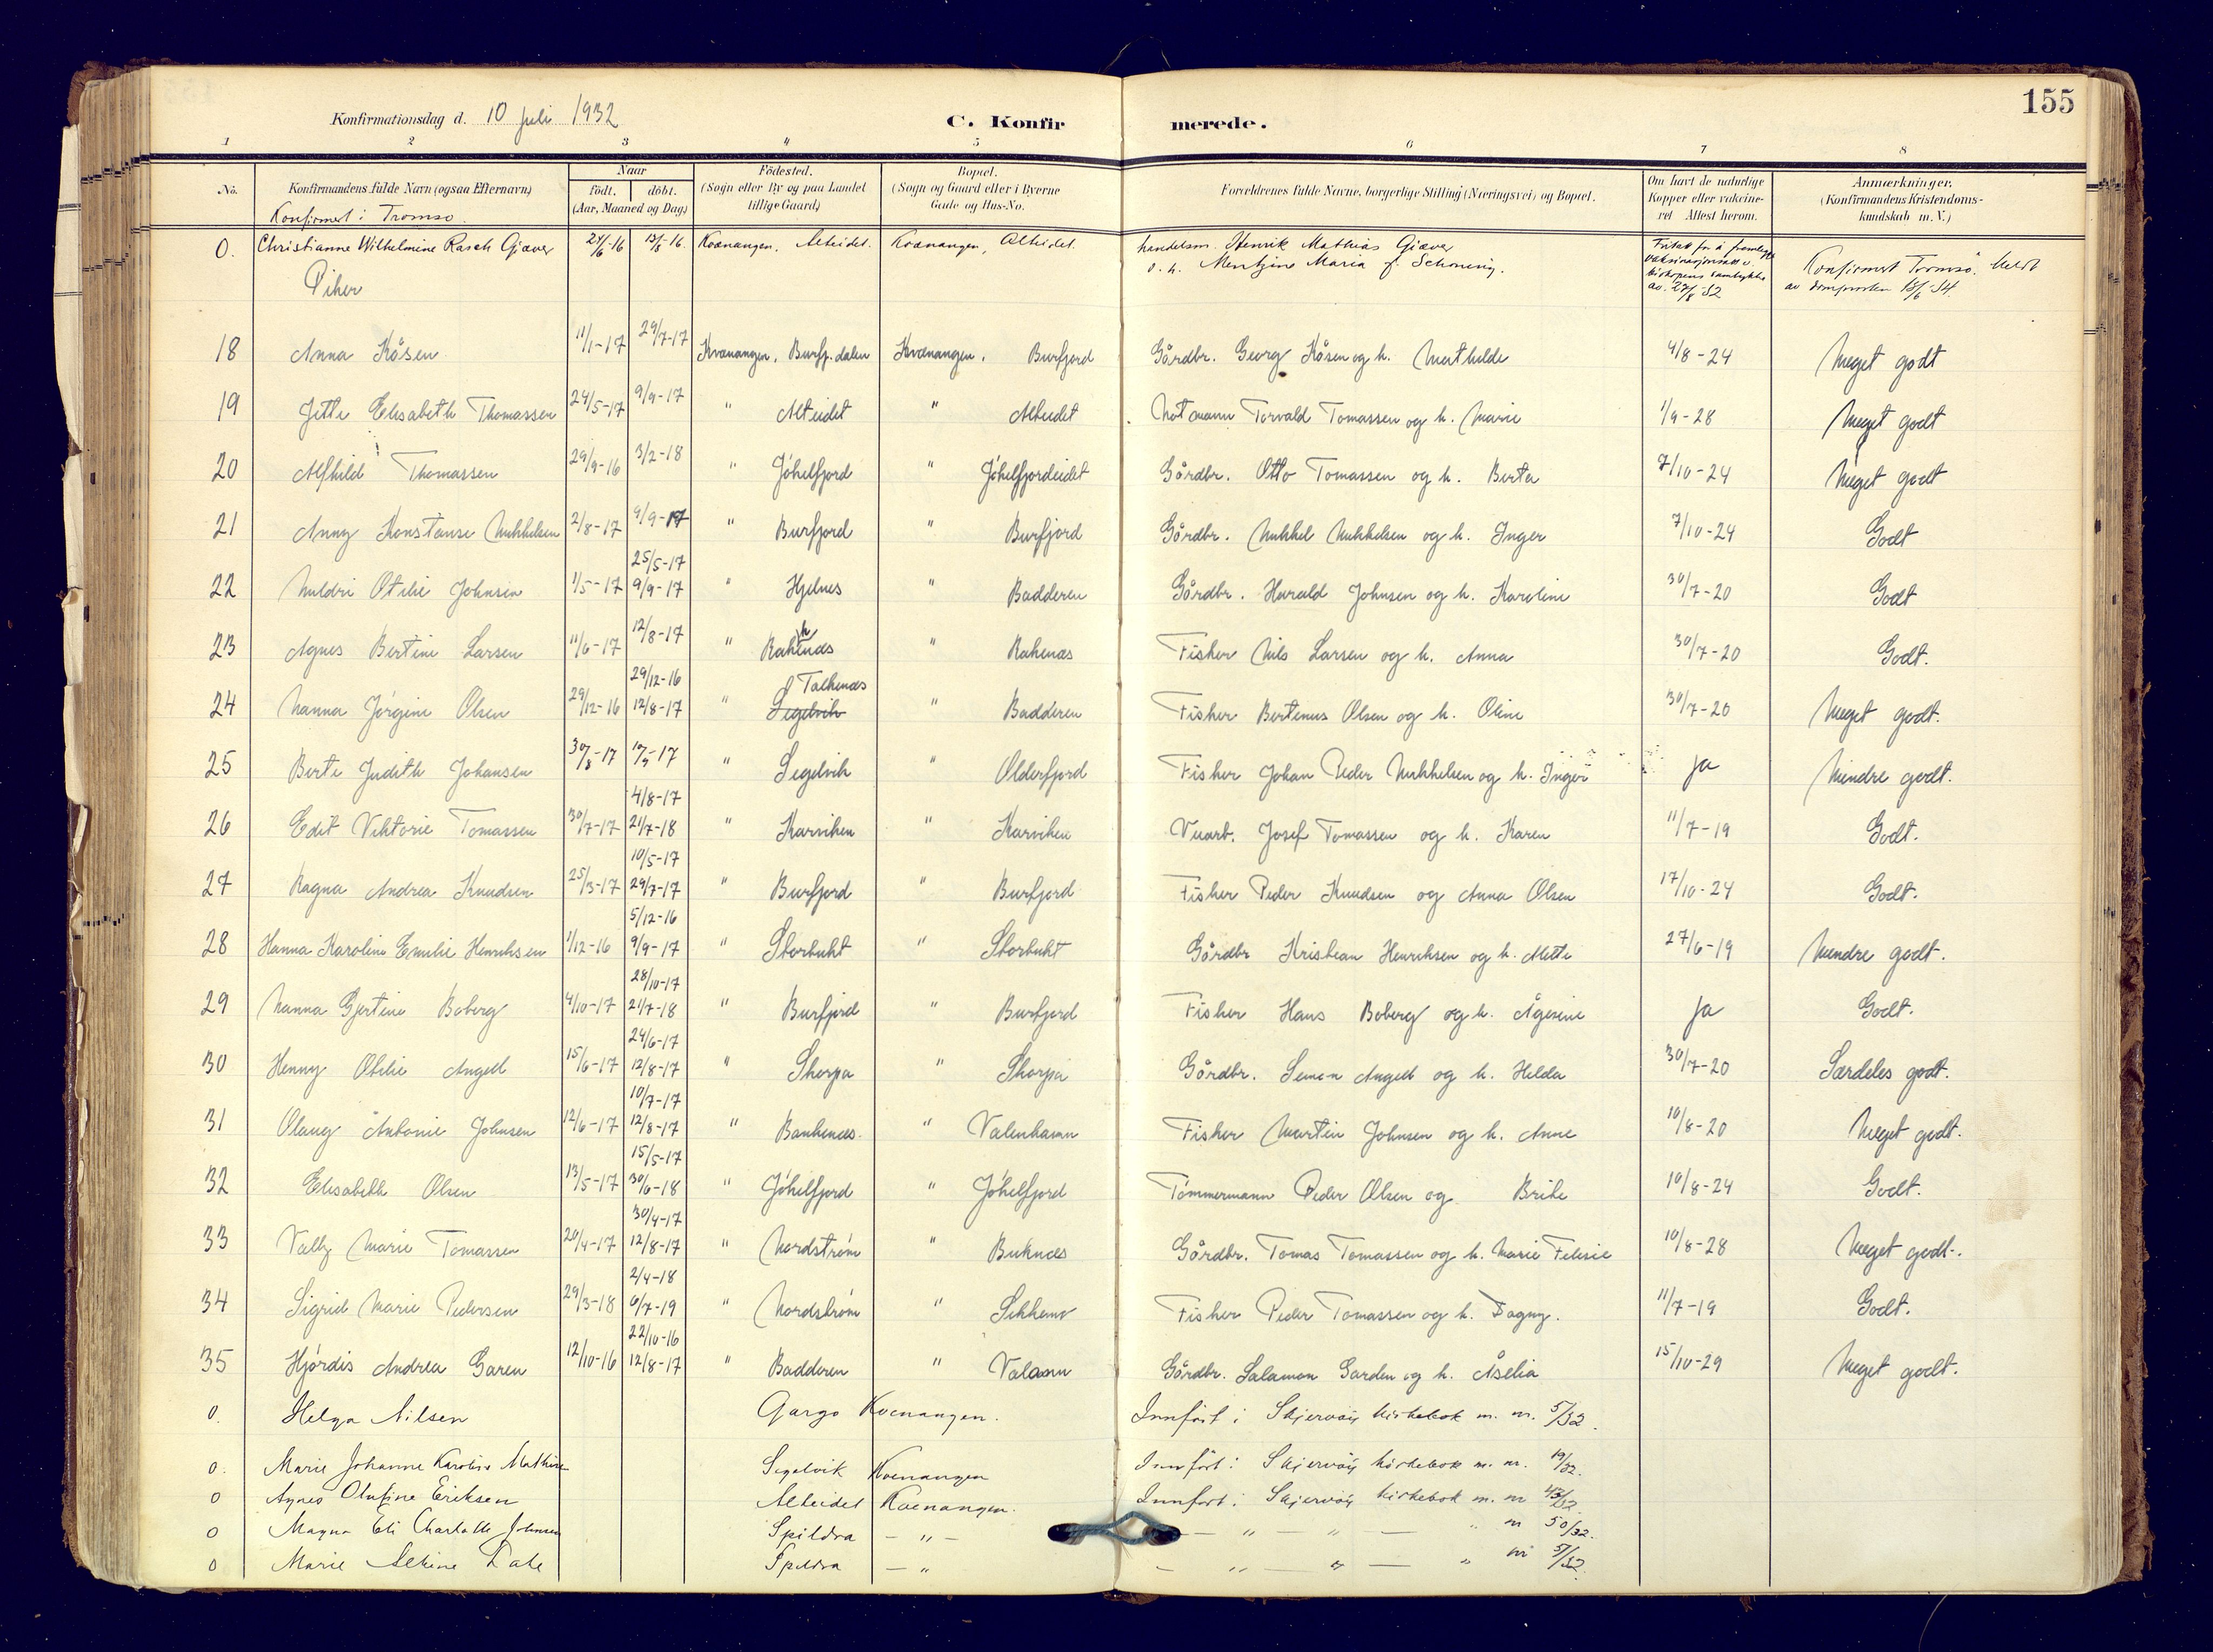 155
Konfirmationsdag d. 10 juli 1932 C. Konfirmerede.
1 2 3 4 5 6 7 8
No. Konfirmandens fulde Navn (ogsaa Efternavn) Naar født. døbt. (Aar, Maaned og Dag) Fødested. (Sogn eller By og paa Landet tillige Gaard) Bopæl. (Sogn og Gaard eller i Byerne Gade og Hus-No. Forældrenes fulde Navne, borgerlige Stilling (Næringsvei) og Bopæl. Om havt de naturlige Kopper eller vaccineret Attest herom. Anmærkninger. (Konfirmandens Kristendomskundskab m. V.)
Konfirmert i Tromsø.
0. Christianne Wilhelmine Rasch Giæver 24/6-16 13/8-16. Kvænangen, Alteidet. Kvænangen, Alteidet. handelsm. Henrik Mathias Giæver o. h. Mentzine Maria f. Schøning. Fritatt for å fremlegge vaksinasjonsatt. biskopens samtykke av 27/8-32 Konfirmert Tromsø. Meldt av domprosten 18/6-34.
Piker
18 Anna Kåsen 11/1-17 29/7-17 Kvænangen, Burfj.dalen Kvænangen, Burfjord Gårdbr. Georg Kåsen og h. Mathilde 4/8-24 Meget godt
19 Jette Elisabeth Thomassen 24/5-17 9/9-17 " Alteidet " Alteidet Notmann Torvald Tomassen og h. Marie 1/9-28 Meget godt
20 Alfhild Thomassen 29/9-16 3/2-18 " Jøkelfjord " Jøkelfjordeidet Gårdbr. Otto Tomassen og h. Berta 7/10-24 Meget godt
21 Anny Konstanse Mikkelsen 2/8-17 9/9-17 " Burfjord " Burfjord Gårdbr. Mikkel Mikkelsen og h. Inger 7/10-24 Godt
22 Mildri Otilie Johnsen 1/5-17 25/5-17 9/9-17 " Hjelnes " Badderen Gårdbr. Harald Johnsen og h. Karoline 30/7-20 Godt
23 Agnes Bertine Larsen 11/6-17 12/8-17 " Rakenæs " Rakenæs Fisker Nils Larsen og h. Anna 30/7-20 Godt.
24 Nanna Jørgine Olsen 29/12-16 29/12-16 12/8-17 " Segelvik Talkenæs " Badderen Fisker Bertinus Olsen og h. Oline 30/7-20 Meget godt.
25 Berte Judith Johansen 30/8-17 " Segelvik " Olderfjord Fisker Johan Peder Mikkelsen og h. Inger ja Mindre godt.
26 Edit Viktorie Tomassen 30/7-17 4/8-17 21/7-18 " Karviken " Karviken Vuarb. Josef Tomassen og h. Karen 11/7-19 Godt.
27 Ragna Andrea Knudsen 25/3-17 10/5-17 29/7-17 " Burfjord " Burfjord Fisker Peder Knudsen og Anna Olsen 17/10-24 Godt.
28 Hanna Karoline Emilie Henriksen 1/12-16 5/12-16 9/9-17 " Storbukt " Storbukt Gårdbr Kristian Henriksen og h. Mette 27/6-19 Mindre godt.
29 Nanna Gjertine Boberg 4/10-17 28/10-17 21/7-18 " Burfjord " Burfjord Fisker Hans Boberg og h. Ågesine ja Godt.
30 Henny Otilie Angell 15/6-17 24/6-17 12/8-17 " Skorpa " Skorpa Gårdbr. Simon Angell og h. Helda 30/7-20 Særdeles godt.
31 Olaug Antonie Johnsen 12/6-17 10/7-17 12/8-17 " Bankenæs. " Valenhamn Fisker Martin Johnsen og h. Anne 10/8-20 Meget godt.
32 Elisabeth Olsen 13/5-17 15/5-17 30/6-18 " Jøkelfjord " Jøkelfjord Tømmermann Peder Olsen og Brite 10/8-24 Godt.
33 Vally Marie Tomassen 20/4-17 30/4-17 12/8-17 " Nordstrøm " Buknæs Gårdbr. Tomas Tomassen og h. Marie Felisie 10/8-28 Meget godt.
34 Sigrid Marie Pedersen 29/3-18 2/4-18 6/7-19 " Nordstrøm " Sekkemo Fisker Peder Tomassen og h. Dagny. 11/7-19 Godt.
35 Hjørdis Andrea Garen 12/10-16 22/10-16 12/8-17 " Badderen " Valann Gårdbr. Salamon Garden og h. Åselia 15/10-29 Meget godt.
0. Helga Nilsen Gargo Kvenangen. Innført i Skjervøy kirkebok m. nr. 5/32.
0. Marie Johanne Karoline Mathisen Segelvik Kvenangen Innført i Skjervøy kirkebok m. nr. 19/32.
0 Agnes Olufine Eriksen Alteidet Kvenangen. Innført i Skjervøy kirkebok m. nr 43/32
0 Magna Eli Charlotte Johnsen Spildra — " — — " — " — " nr 50/32.
0 Marie Alkine Spildra — " — " — " — " nr 51/32.